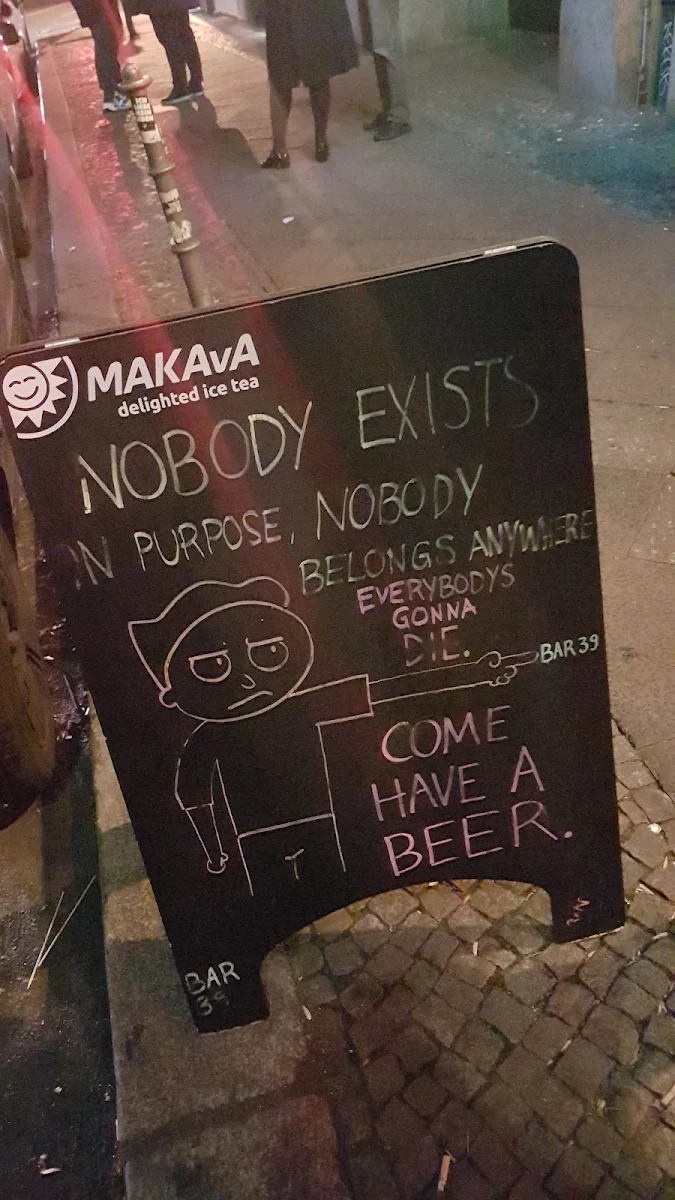 MAKAvA
delighted ice tea
NOBODY EXISTS
ON PURPOSE, NOBODY
BELONGS ANYWHERE
EVERYBODYS
GONNA
DIE.
BAR 39
COME
HAVE A
BEER.
BAR
39